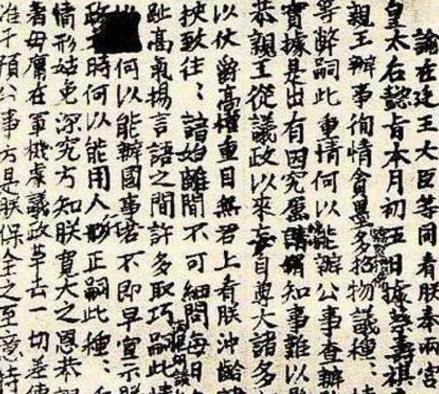 諭在廷王大臣等同看朕奉兩宮
皇太后認旨本月初五日據蔡壽祺
親王辦事徇情貪墨多招物議種:
等弊嗣此重情何以能辦公事查辦
實據是出有因究屬知事難以
恭親王從議政以來妄自尊大諸多
以仗爵高權重目無君上看朕沖齡
挾致往:諳始離間不可細問每日
趾高氣揚言語之間許多取巧嗣此情
何以能辦國事若不即早宣示朕
政時何以能用人行正嗣此種:
情形姑免深究方知朕寬大之恩恭親
著毋庸在軍機處議政革去一切差使
准干預公事方是朕保全之至意特